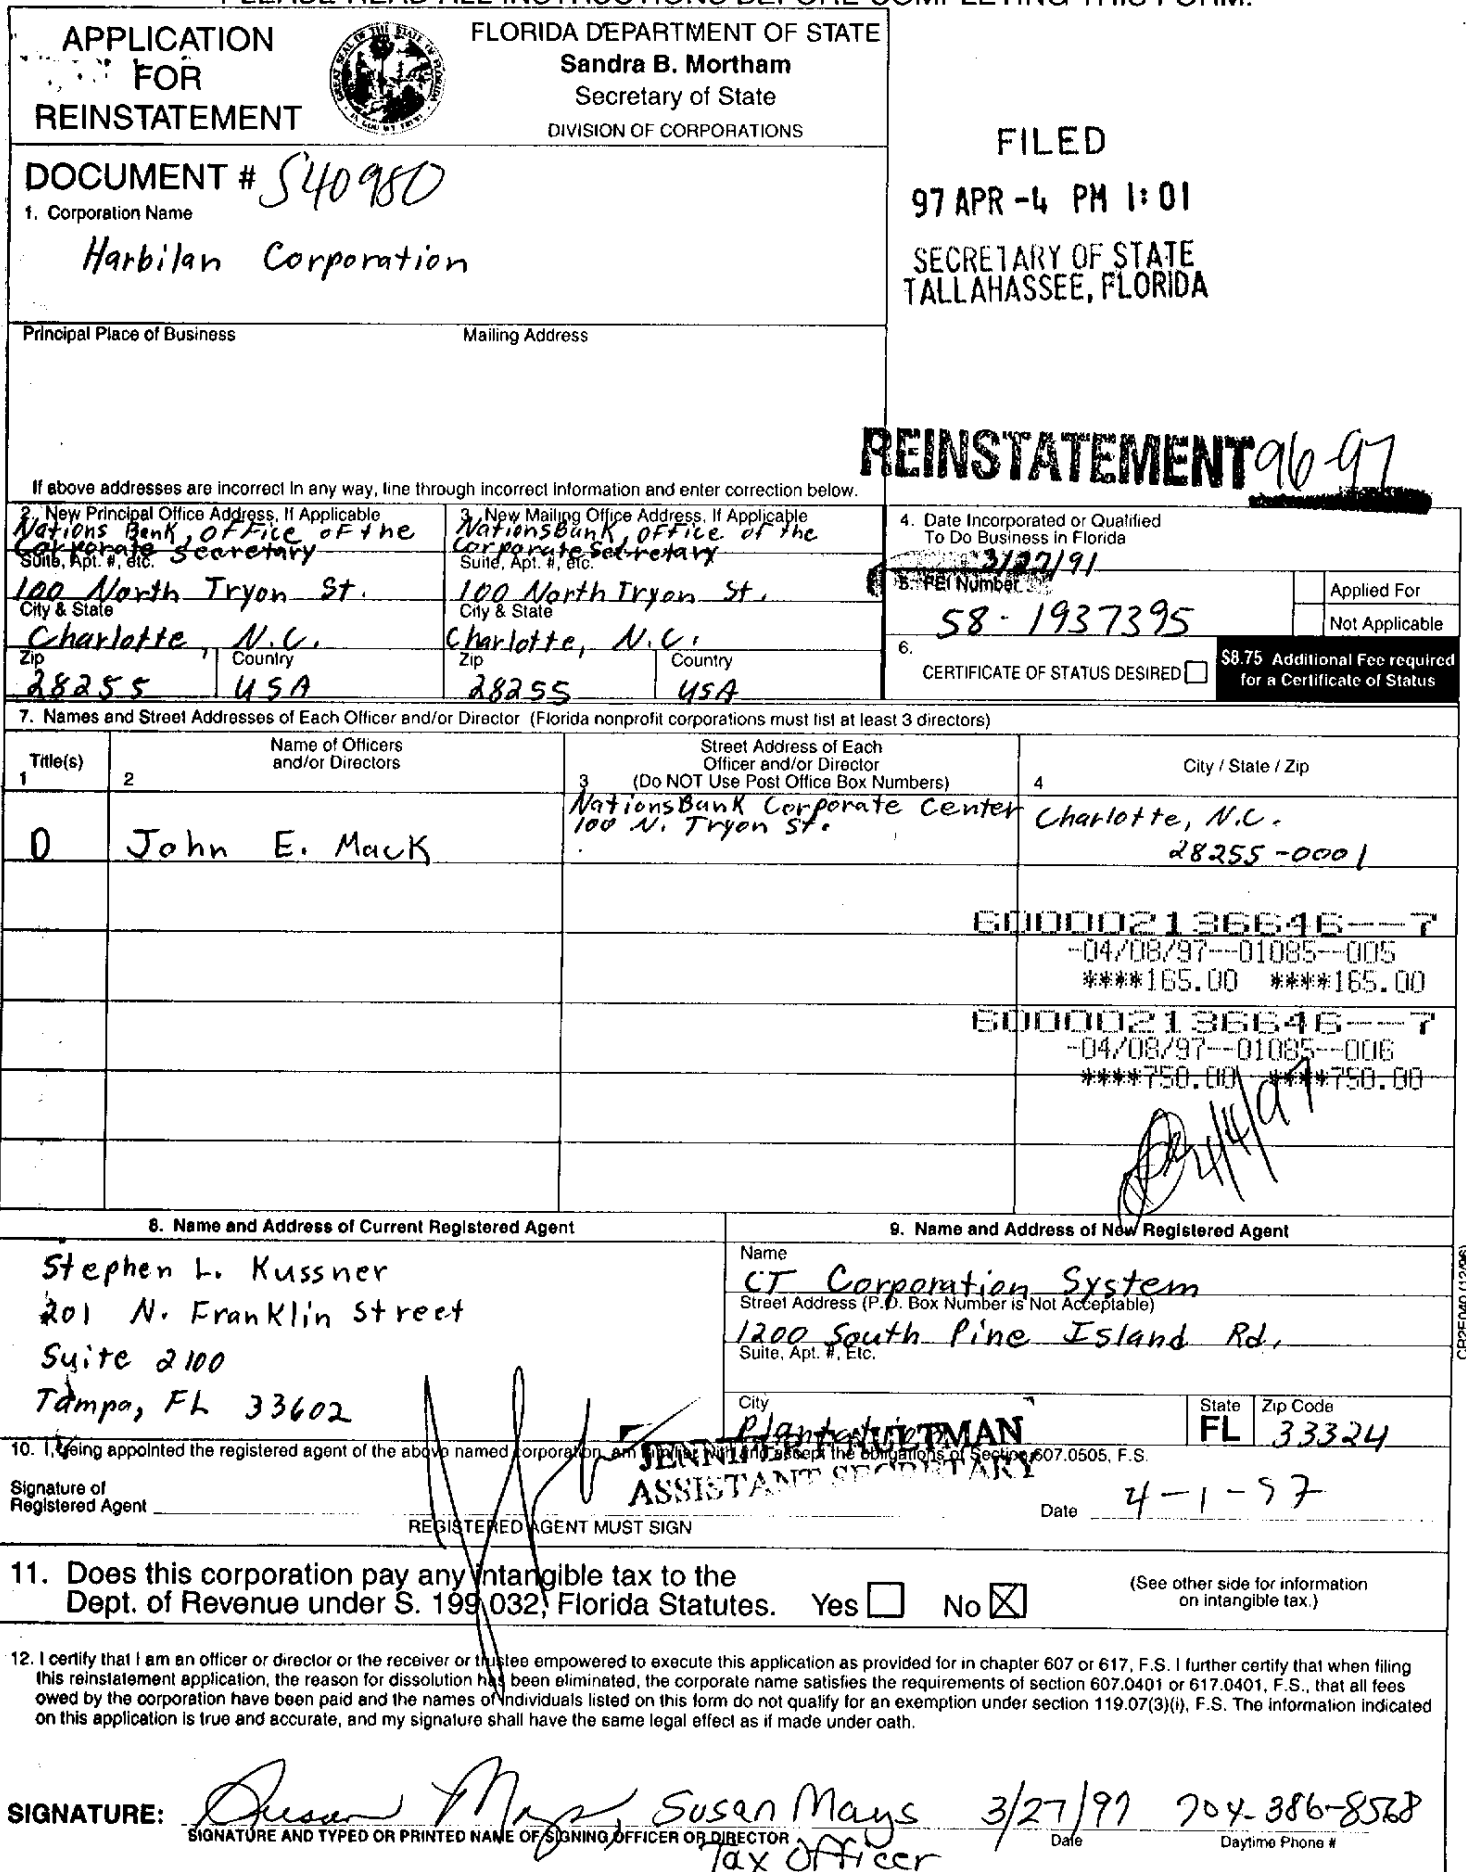 PLEASE READ ALL INSTRUCTIONS BEFORE COMPLETING THIS FORM.
APPLICATION
FOR
REINSTATEMENT
FLORIDA DEPARTMENT OF STATE
Sandra B. Mortham
Secretary of State
DIVISION OF CORPORATIONS
FILED
97 APR -4 PM 1:01
SECRETARY OF STATE
TALLAHASSEE, FLORIDA
DOCUMENT # S40980
1. Corporation Name
Harbilan Corporation
Principal Place of Business
Mailing Address
REINSTATEMENT 96-97
If above addresses are incorrect in any way, line through incorrect information and enter correction below.
2. New Principal Office Address, If Applicable
Nations Bank, Office of the
Corporate Secretary
Suite, Apt. #, etc.
100 North Tryon St.
City & State
Charlotte, N.C.
Zip
28255
Country
USA
3. New Mailing Office Address, If Applicable
NationsBank, Office of the
Corporate Secretary
Suite, Apt. #, etc.
100 North Tryon St.
City & State
Charlotte, N.C.
Zip
28255
Country
USA
4. Date Incorporated or Qualified
To Do Business in Florida
3/27/91
5. FEI Number
58-1937395
Applied For
Not Applicable
6.
CERTIFICATE OF STATUS DESIRED
$8.75 Additional Fee required
for a Certificate of Status
7. Names and Street Addresses of Each Officer and/or Director (Florida nonprofit corporations must list at least 3 directors)
Title(s)
1
Name of Officers
and/or Directors
2
Street Address of Each
Officer and/or Director
3 (Do NOT Use Post Office Box Numbers)
City / State / Zip
4
D
John E. Mack
NationsBank Corporate Center
100 N. Tryon St.
Charlotte, N.C.
28255-0001
600002136646--7
-04/08/97--01085--005
****165.00 ****165.00
600002136646--7
-04/08/97--01085--006
****750.00 ****750.00
4/4/97
8. Name and Address of Current Registered Agent
Stephen L. Kussner
201 N. Franklin Street
Suite 2100
Tampa, FL 33602
9. Name and Address of New Registered Agent
Name
CT Corporation System
Street Address (P.O. Box Number is Not Acceptable)
1200 South Pine Island Rd.
Suite, Apt. #, Etc.
City
Plantation
State
FL
Zip Code
33324
CR2E040 (12/96)
10. I, being appointed the registered agent of the above named corporation, am familiar with and accept the obligations of Section 607.0505, F.S.
ASSISTANT SECRETARY
Signature of
Registered Agent
REGISTERED AGENT MUST SIGN
Date 4-1-97
11. Does this corporation pay any intangible tax to the
Dept. of Revenue under S. 199.032, Florida Statutes. Yes No
(See other side for information
on intangible tax.)
12. I certify that I am an officer or director or the receiver or trustee empowered to execute this application as provided for in chapter 607 or 617, F.S. I further certify that when filing
this reinstatement application, the reason for dissolution has been eliminated, the corporate name satisfies the requirements of section 607.0401 or 617.0401, F.S., that all fees
owed by the corporation have been paid and the names of individuals listed on this form do not qualify for an exemption under section 119.07(3)(i), F.S. The information indicated
on this application is true and accurate, and my signature shall have the same legal effect as if made under oath.
SIGNATURE: Susan Mays, Susan Mays 3/27/97 704-386-8568
SIGNATURE AND TYPED OR PRINTED NAME OF SIGNING OFFICER OR DIRECTOR
Date
Daytime Phone #
Tax Officer